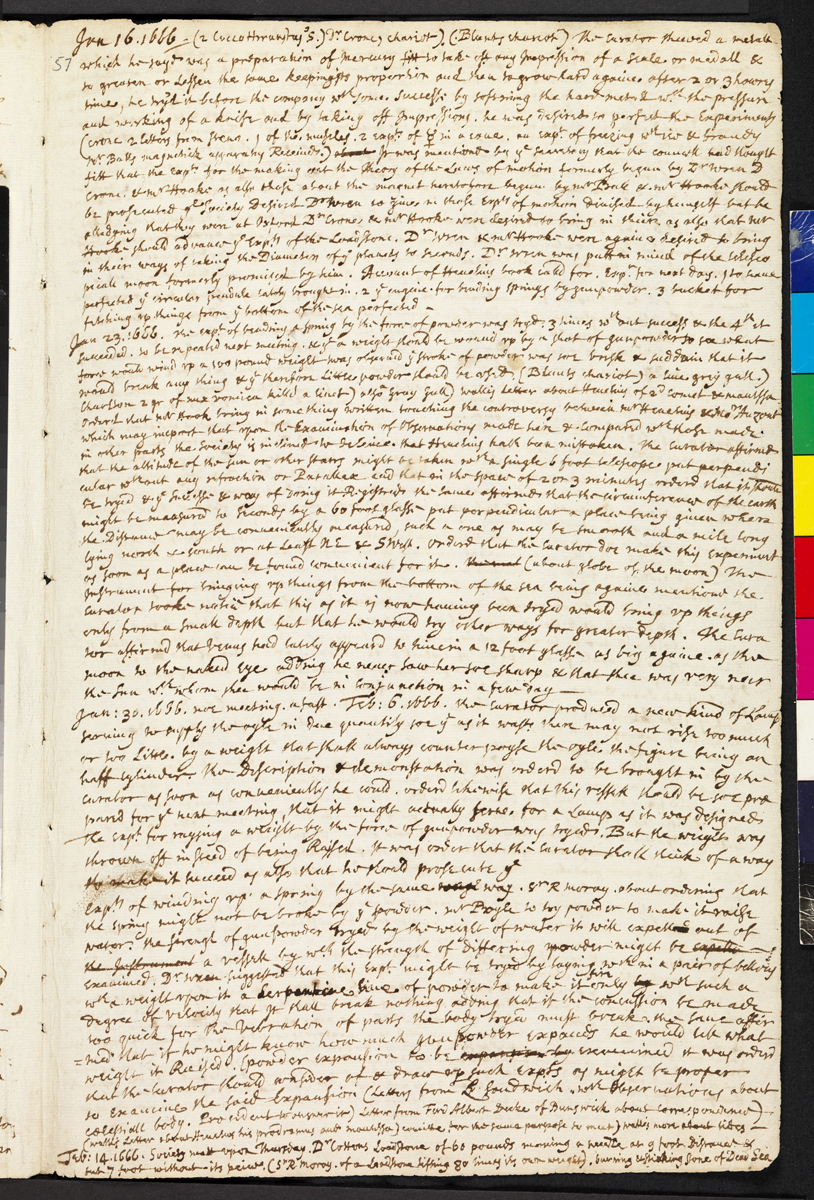 57
Jan 16. 1666 - (2 Cocco Hirundus S.) Dr Crones chariot). (Blunts chariot) The Curator shewed a metall
which he sayd was a preparation of mercury fitt to take off any Impression of a Seale or medall &
to greaten or Lessen the same keeping its proportion and then to grow hard againe after 2 or 3 howrs
time, he tryd it before the company wth some Successe by softning the hard metall wth the pressure
and working of a knife and by taking off Impressions. he was desired to perfect the Experiments
(Crone 2 letters from Steno. 1 of the muscles. 2 expts of in a cave. an expt of freezing wth ice & brandy
Mr Balls magnetick apparatus Received.) It was mentiond by ye Secretary that the councell had thought
fitt that the expts for the making out the Theory of the Laws of motion formerly begun by Dr Wren D
Crone. & Mr Hooke as also those about the magnet heretofore begun by Mr Ball & Mr Hooke should
be prosecuted ye Society Desired Dr Wren to give in those Expts of motion Divised by himself but he
alledging that they were at Oxford Dr Crone & Mr Hooke were desired to bring in theirs as also that Mr
Hooke should advance ye Expts of the Loadstone. Dr Wren & Mr Hooke were againe desired to bring
in their ways of taking the Diameters of ye planets to seconds. Dr Wren was putt in mind of the selesco
picall moon formerly promised by him. Account of Hevelius book calld for. Expts for next day. 1 to have
perfected ye circular pendule lately brought in. 2 ye engine for bending springs by gunpowder. 3 bucket for
fetching up things from ye bottom of the sea perfected -
Jan 23. 1666. the expt of bending a spring by the force of powder was tryd. 3 times wthout success & the 4th it
succeeded. to be repeated next meeting. & yt a weight should be wound up by a shot of gunpowder to see what
force would wind up a 100 pound weight was observd ye stroke of powder was soe brisk & suddain that it
would break any thing & yt therefore Little powder should be used. (Blunts chariot) a live grey gull.)
Charlton 2 gr of nux vomica killd a linet) also Gray Gull) wallis letter about Hevelius of 2d comet & mantissa
Orderd that Mr Hook bring in something written touching the controversy between Mr Hevelius & Mr Auzout
which may import that upon the Examination of Observations made here & compared wth those made
in other parts the Society is inclined to believe that Hevelius hath been mistaken. The Curator affirmd
that the altitude of the sun or other starrs might be taken wth a single 6 foot telescope put perpendi
cular without any refraction or Paralax and that in the space of 2 or 3 minutes orderd that it should
be tryed & ye successe & way of doing it Registred the same affirmed that the circumference of the earth
might be measured to seconds by a 60 foot glasse put perpendicular a place being given where
the Distance may be conveniently measured, such a one as may be smooth and a mile long
lying north & south or at Least NE & SWest. Orderd that the Curator doe make this experiment
as soon as a place can be found convenient for it. (about globe of the moon) The
Instrument for bringing up things from the bottom of the sea being againe mentiond the
Curator tooke notice that this as it is now having been tryed would bring up things
only from a small depth but that he would try other ways for greater depth. The Cura
tor affirmd that Venus had lately appeard to him in a 12 foot glasse as big againe as the
moon to the naked eye adding he never saw her soe sharp & that shee was very near
the sun wth whom shee would be in conjunction in a few days
Jan: 30. 1666. noe meeting. a fast. Feb: 6. 1666. the Curator produced a new kind of Lamp
serving to supply the oyle in due quantity soe yt as it wasts there may not rise too much
or too Little. by a weight that shall always counter poyse the oyle the figure being an
half cylinder. the Discription & demonstration was orderd to be brought in by the
Curator as soon as conveniently he could. orderd likewise that this vessell should be soe pre
pared for ye next meeting, that it might actually serve for a Lamp as it was designed
The expt for raysing a weight by the force of gunpowder was tryed. But the weight was
thrown off insteed of being Raised. It was order that the Curator shall think of a way
to make it succeed as also that he should prosecute ye
Expts of winding up a spring by the same way. Sr R Moray about ordering that
the spring might not be broke by ye powder. Mr Boyle to try powder to make it raise
water. the strength of gunpowder tryed by the weight of water it will expell out of
the Instrument a vessell by wch the strength of differing powder might be
Examined. Dr Wren suggested that this Expt might be tryd by laying wthin a paire of bellows
wth a weight upon it a serpentine line of powder to make it fire only by wth such a
degree of velocity that yt shall break nothing adding that if the concussion be made
too quick for the vibration of parts the body tryed must break. the same affir
med that if he might know how much gunpowder expands he would tell what
weight it Raised. (powder expansion to be examined it was orderd
that the Curator should consider of & draw up such expts as might be proper
to examine the said Expansion (Letters from Ld Sandwich. wth observations about
celestiall body. President to answer it) Letter from Ferd Albert Duke of Brunswick about correspondence)
(wallis letter about Hevelius his prodromus and mantissa) write for the same purpose to men) wallis more about tides)
Feb: 14. 1666. Society mett upon Thursday. Dr Cottons Loadstone of 60 pounds moving a needle at 9 foot Distance &
but 7 foot without its peice. (Sr R Moray. of a Loadstone lifting 80 times its own weight). burning & stinking stone of Dead Sea